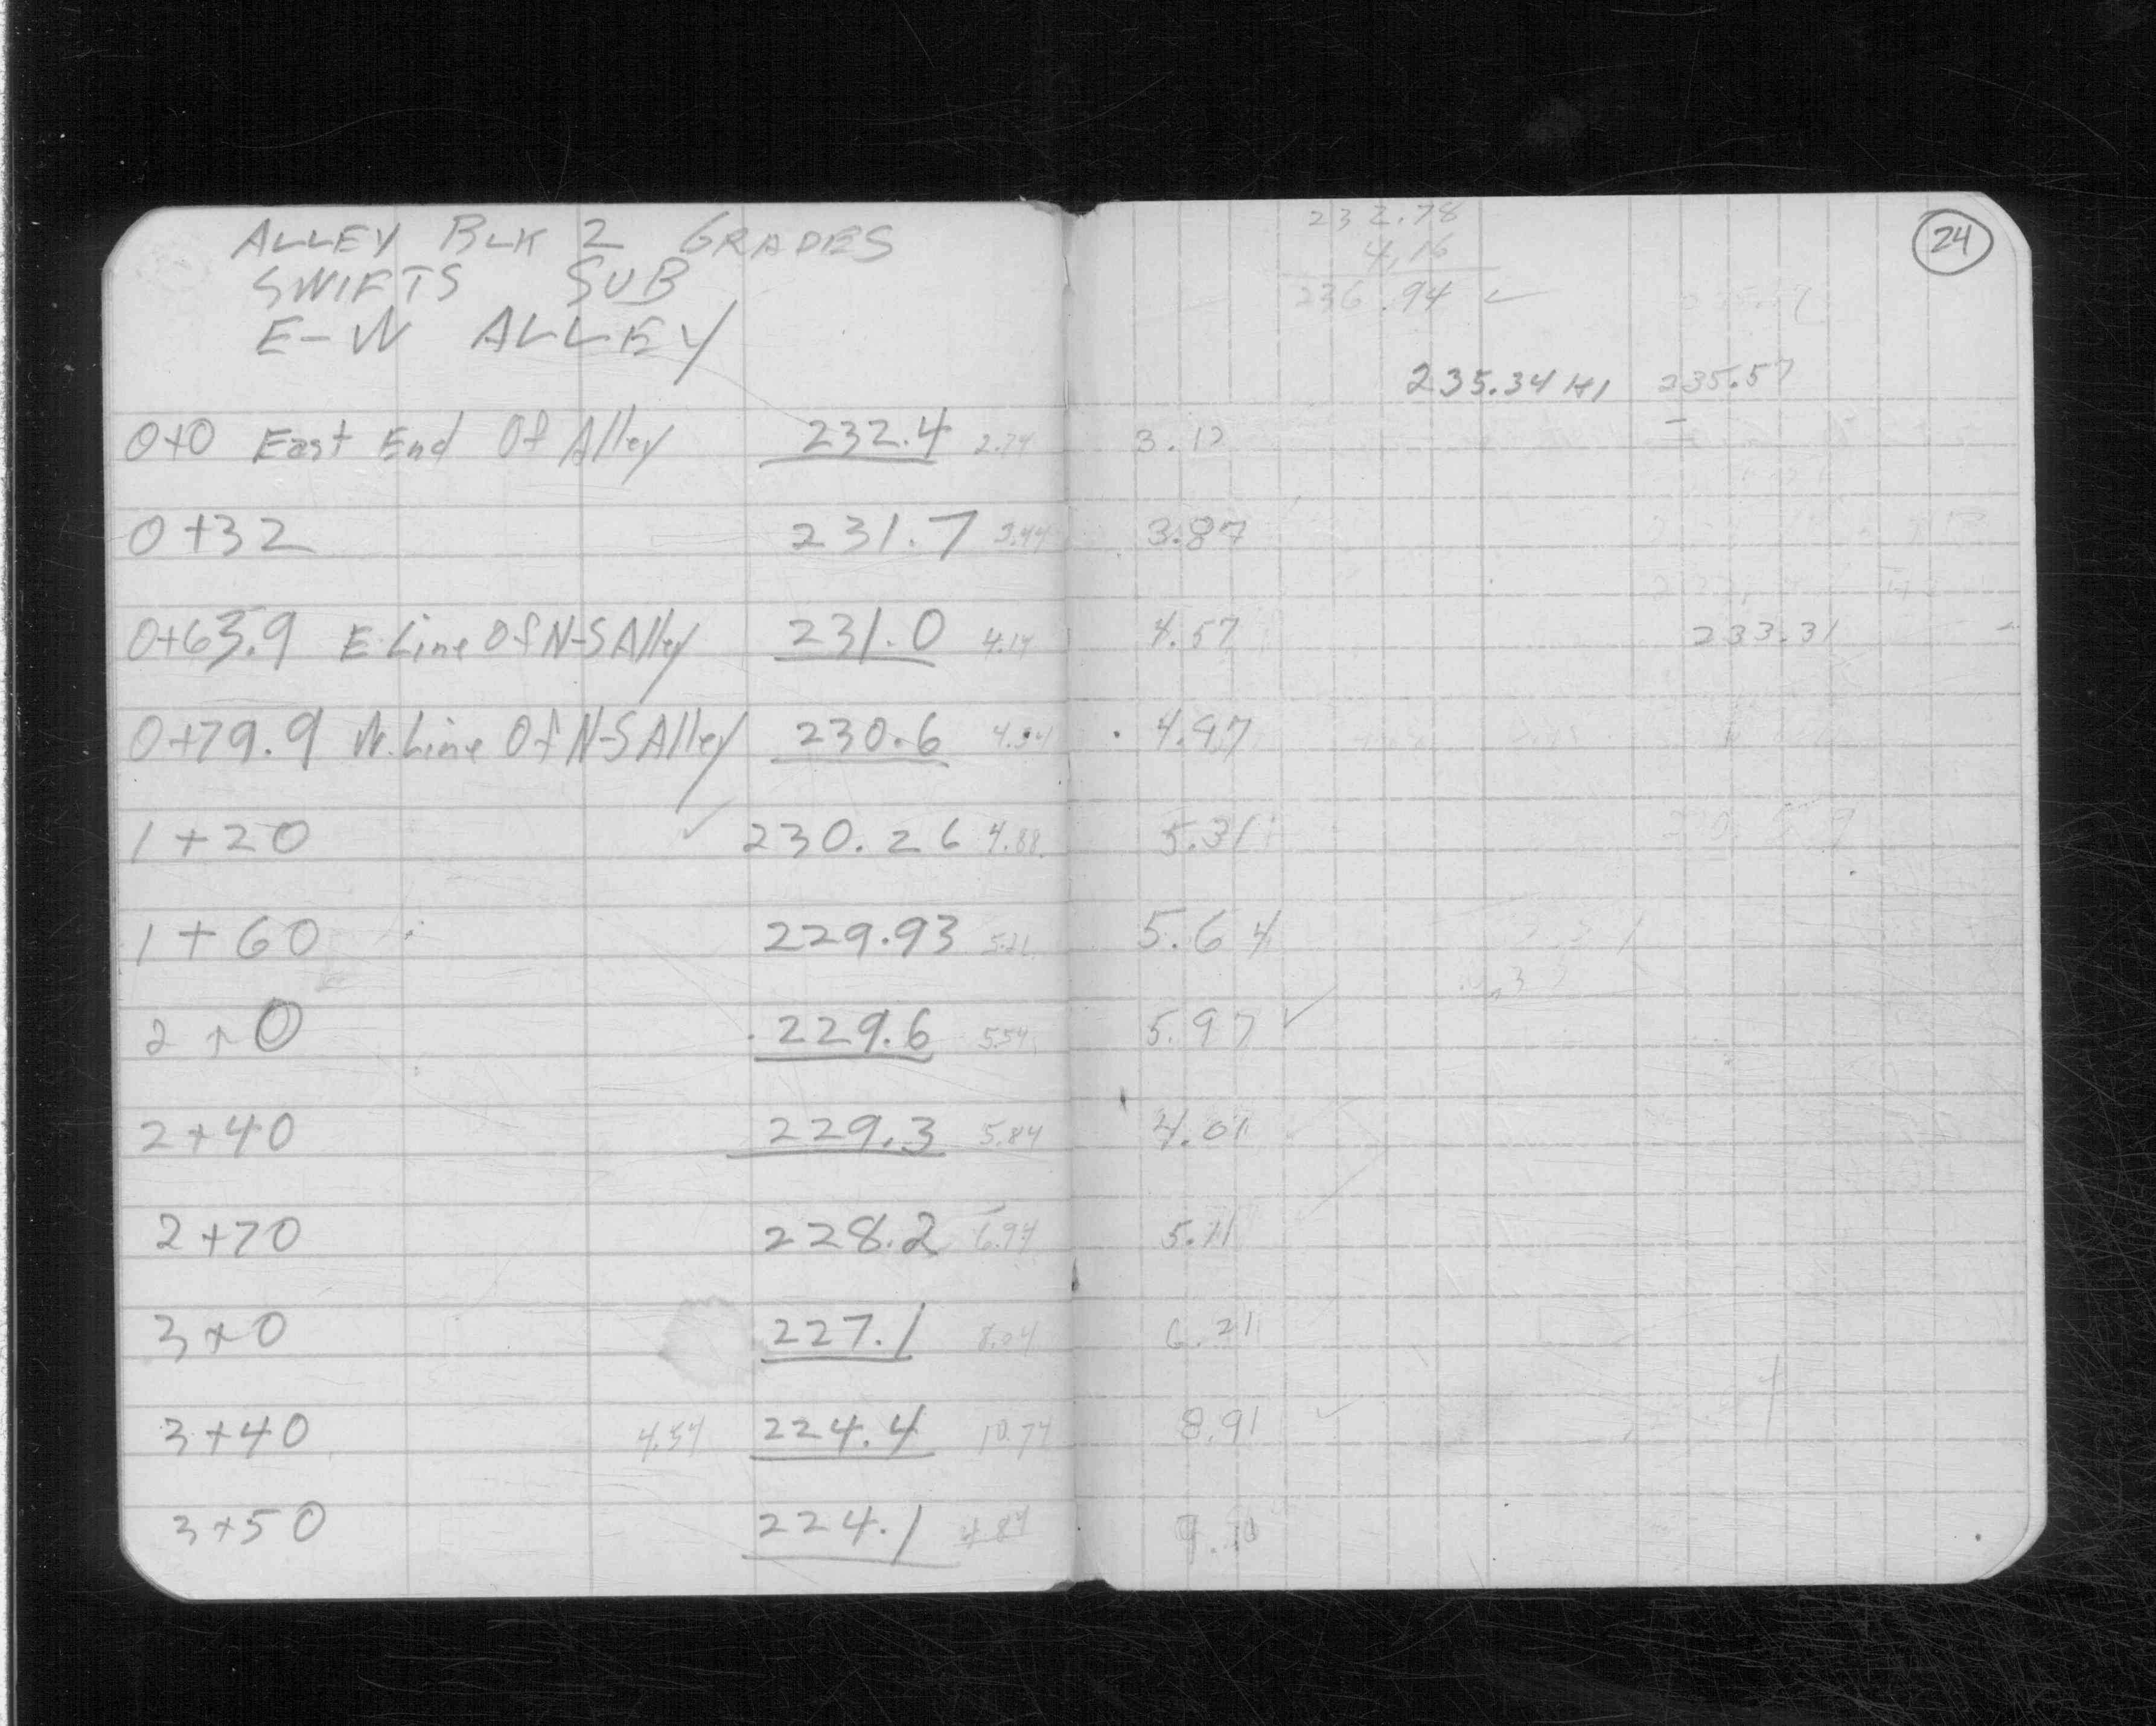 ALLEY BLK 2 GRADES
SWIFTS SUB
E-W ALLEY
0+0 East End Of Alley 232.4 2.94
0+32 231.7 3.44
0+63.9 E. Line Of N-S Alley 231.0 4.14
0+79.9 W. Line Of N-S Alley 230.6 4.54
1+20 ✓ 230.26 4.88
1+60 229.93 5.21
2+0 229.6 5.54
2+40 229.3 5.84
2+70 228.2 6.94
3+0 227.1 8.04
3+40 4.54 224.4 10.74
3+50 224.1 4.84
24
232.78
4.16
236.94 ✓
235.34 HI 235.57
3.17
3.87
4.57 233.31
4.97
5.31
5.64
5.97 ✓
4.01
5.11
6.21
8.91 ✓